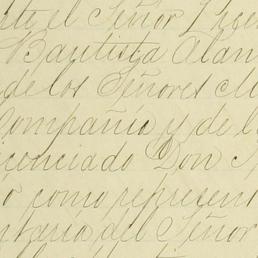 nte el Señor Licen
Bautista Alam
de los Señores M
Compañia y de l
icenciado Don
o como represent
ntaria del Señor